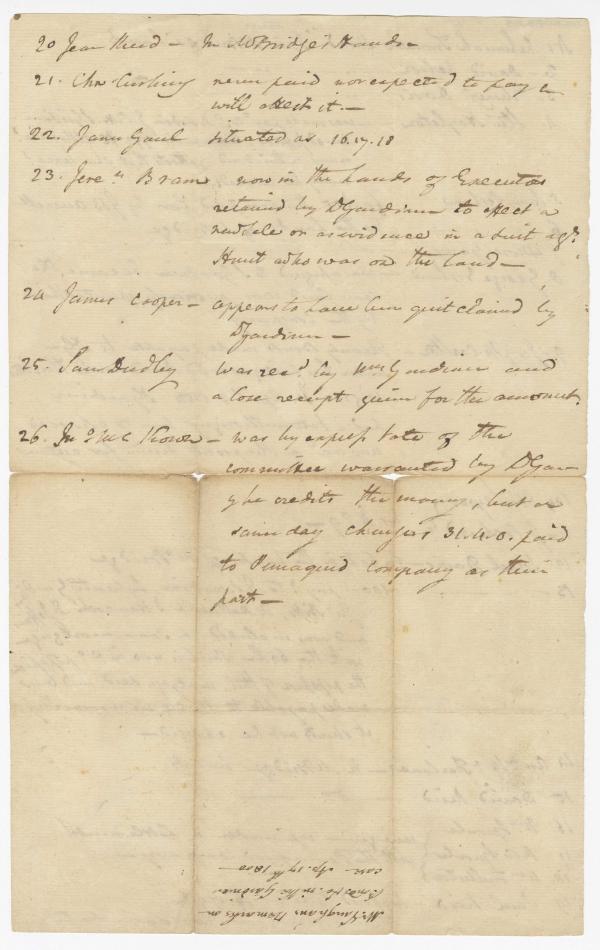 20 Jean Reed - In McBridge's Hands -
21. Chrr Curling never paid nor expected to pay &
will attest it. -
22. James Gaul situated as 16.17.18
23. Jere.h Bram now in the hands of Executors
retained by DGardiner to effect a
new sale or as evidence in a suit agt.
Hunt who was on the land -
24 James Cooper - appears to have been quit claimed by
DGardiner -
25. Sam Dudley was recd by Wm Gardiner and
a lose receipt given for the amount.
26. Jno McKown - was by express vote of the
committee warranted by DGar -
& he credits the money, but on
same day charges 31.4.0. paid
to Pemaquid company as their
part -
Mr Vaughan's Remarks on
Bonds &c. in the Gardiner
case Ap. 17th 1800